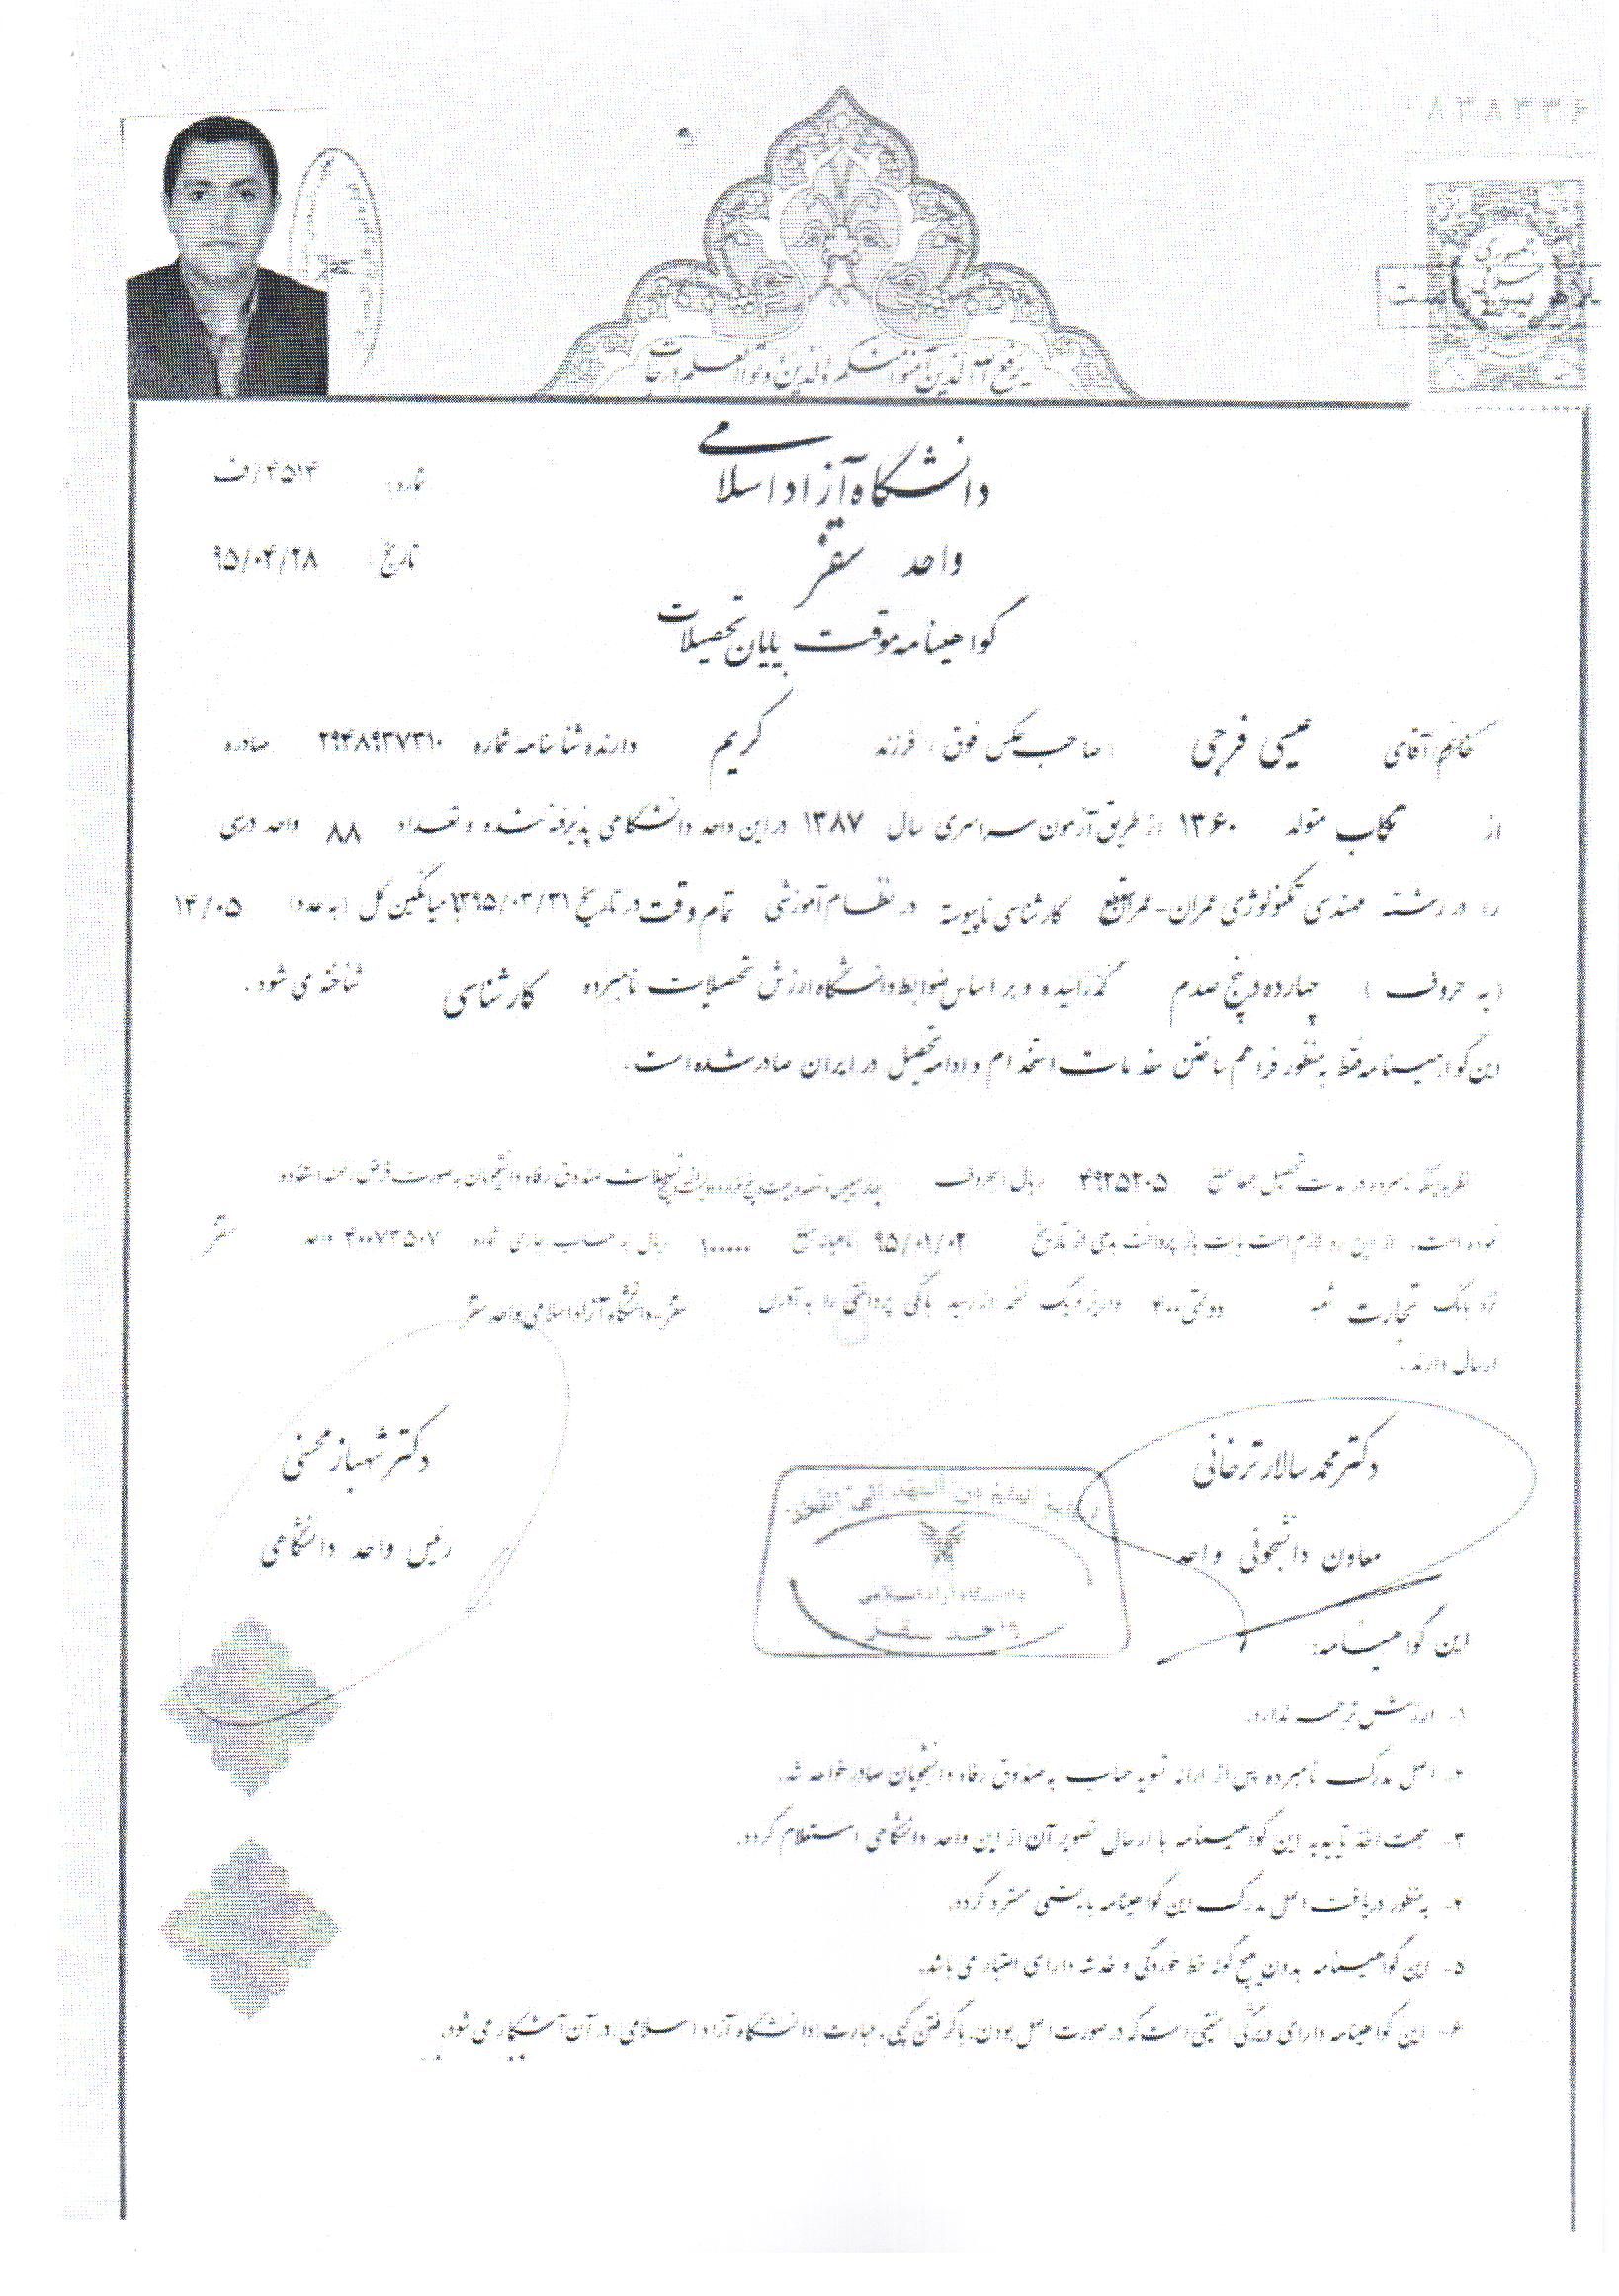 یرفع الله الذین آمنوا منکم والذین اوتوا العلم درجات
دانشگاه آزاد اسلامی
شماره: ۴۵۱۴/ف
واحد سقز
تاریخ: ۹۵/۰۴/۲۸
گواهینامه موقت پایان تحصیلات
خانم/آقای عیسی فرجی (صاحب عکس فوق) فرزند کریم دارنده شناسنامه شماره صادره
از تکاب متولد ۱۳۶۰ از طریق آزمون سراسری سال ۱۳۸۷ در این واحد دانشگاهی پذیرفته شده و تعداد ۸۸ واحد درسی
را در رشته مهندسی تکنولوژی عمران-عمران مقطع کارشناسی ناپیوسته در نظام آموزشی تمام وقت در تاریخ ۱۳۹۵/۰۳/۳۱ با میانگین کل (به عدد) ۱۴/۰۵
(به حروف) چهارده و پنج صدم گذرانیده و بر اساس ضوابط دانشگاه ارزش تحصیلات نامبرده کارشناسی شناخته می شود.
این گواهینامه فقط به منظور فراهم ساختن خدمات استخدام و ادامه تحصیل در ایران صادر شده است.
نظر به اینکه نامبرده در مدت تحصیل جمعا مبلغ ریال (بحروف تسهیلات صندوق رفاه دانشجویان به صورت قرض الحسنه استفاده
نموده است. از این رو لازم است بابت بازپرداخت بدهی از تاریخ ماهیانه مبلغ ۱۰۰۰۰۰ ریال به حساب جاری شماره واحد سقز
نزد بانک تجارت شعبه واریز و یک نسخه از رسید بانکی پرداختی را به آدرس سقز-دانشگاه آزاد اسلامی واحد سقز
ارسال دارند.
دکتر محمد سالار ترخانی
دکتر شهباز محسنی
معاون دانشجوئی واحد
رئیس واحد دانشگاهی
دانشگاه آزاد اسلامی
واحد سقز
این گواهینامه:
۱- ارزش ترجمه ندارد.
۲- اصل مدرک نامبرده پس از ارائه تسویه حساب به صندوق رفاه دانشجویان صادر خواهد شد.
۳- صحت اخذ تاییدیه این گواهینامه با ارسال تصویر آن از این واحد دانشگاهی استعلام گردد.
۴- به منظور دریافت اصل مدرک این گواهینامه بایستی مسترد گردد.
۵- این گواهینامه بدون هیچ گونه خط خوردگی و خدشه دارای اعتبار می باشد.
۶- این گواهینامه دارای ویژگی امنیتی است که در صورت اصل بودن، با گرفتن کپی، عبارت (دانشگاه آزاد اسلامی) در آن آشکار می شود.